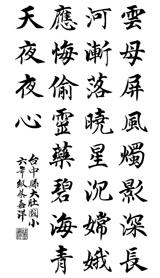 雲母屏風燭影深長
河漸落曉星沉嫦娥
應悔偷靈藥碧海青
天夜夜心
台中縣大肚國小
六年級蔡嘉洋